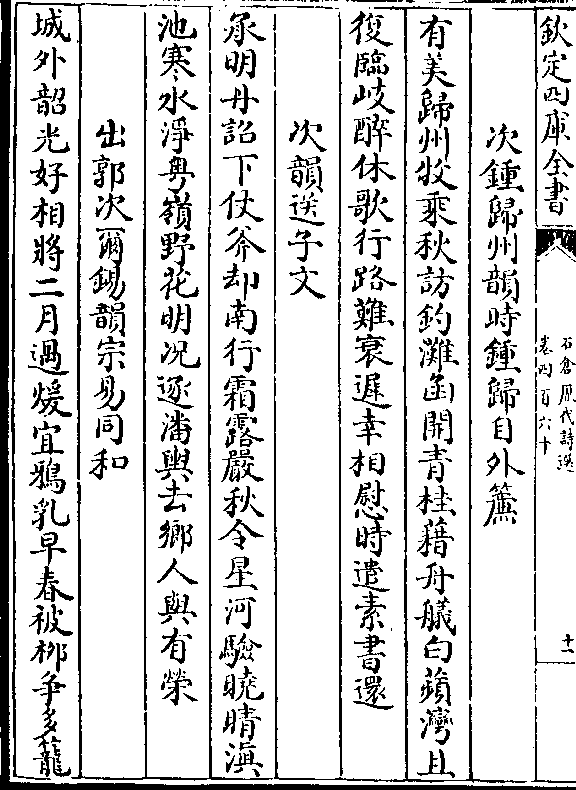 欽定四庫全書
石倉歷代詩選
卷四百六十
十一
次鍾歸州韻時鍾歸自外簾
有美歸州牧乘秋訪釣灘函開青桂藉舟艤白蘋灣且
復臨岐醉休歌行路難衰遲幸相慰時遣素書還
次韻送子文
承明丹詔下仗斧却南行霜露嚴秋令星河驗曉晴滇
池寒水淨粤嶺野花明况逐潘輿去鄉人與有榮
出郭次爾錫韻宗易同和
城外韶光好相將二月過煖宜鴉乳早春被栁爭多籠